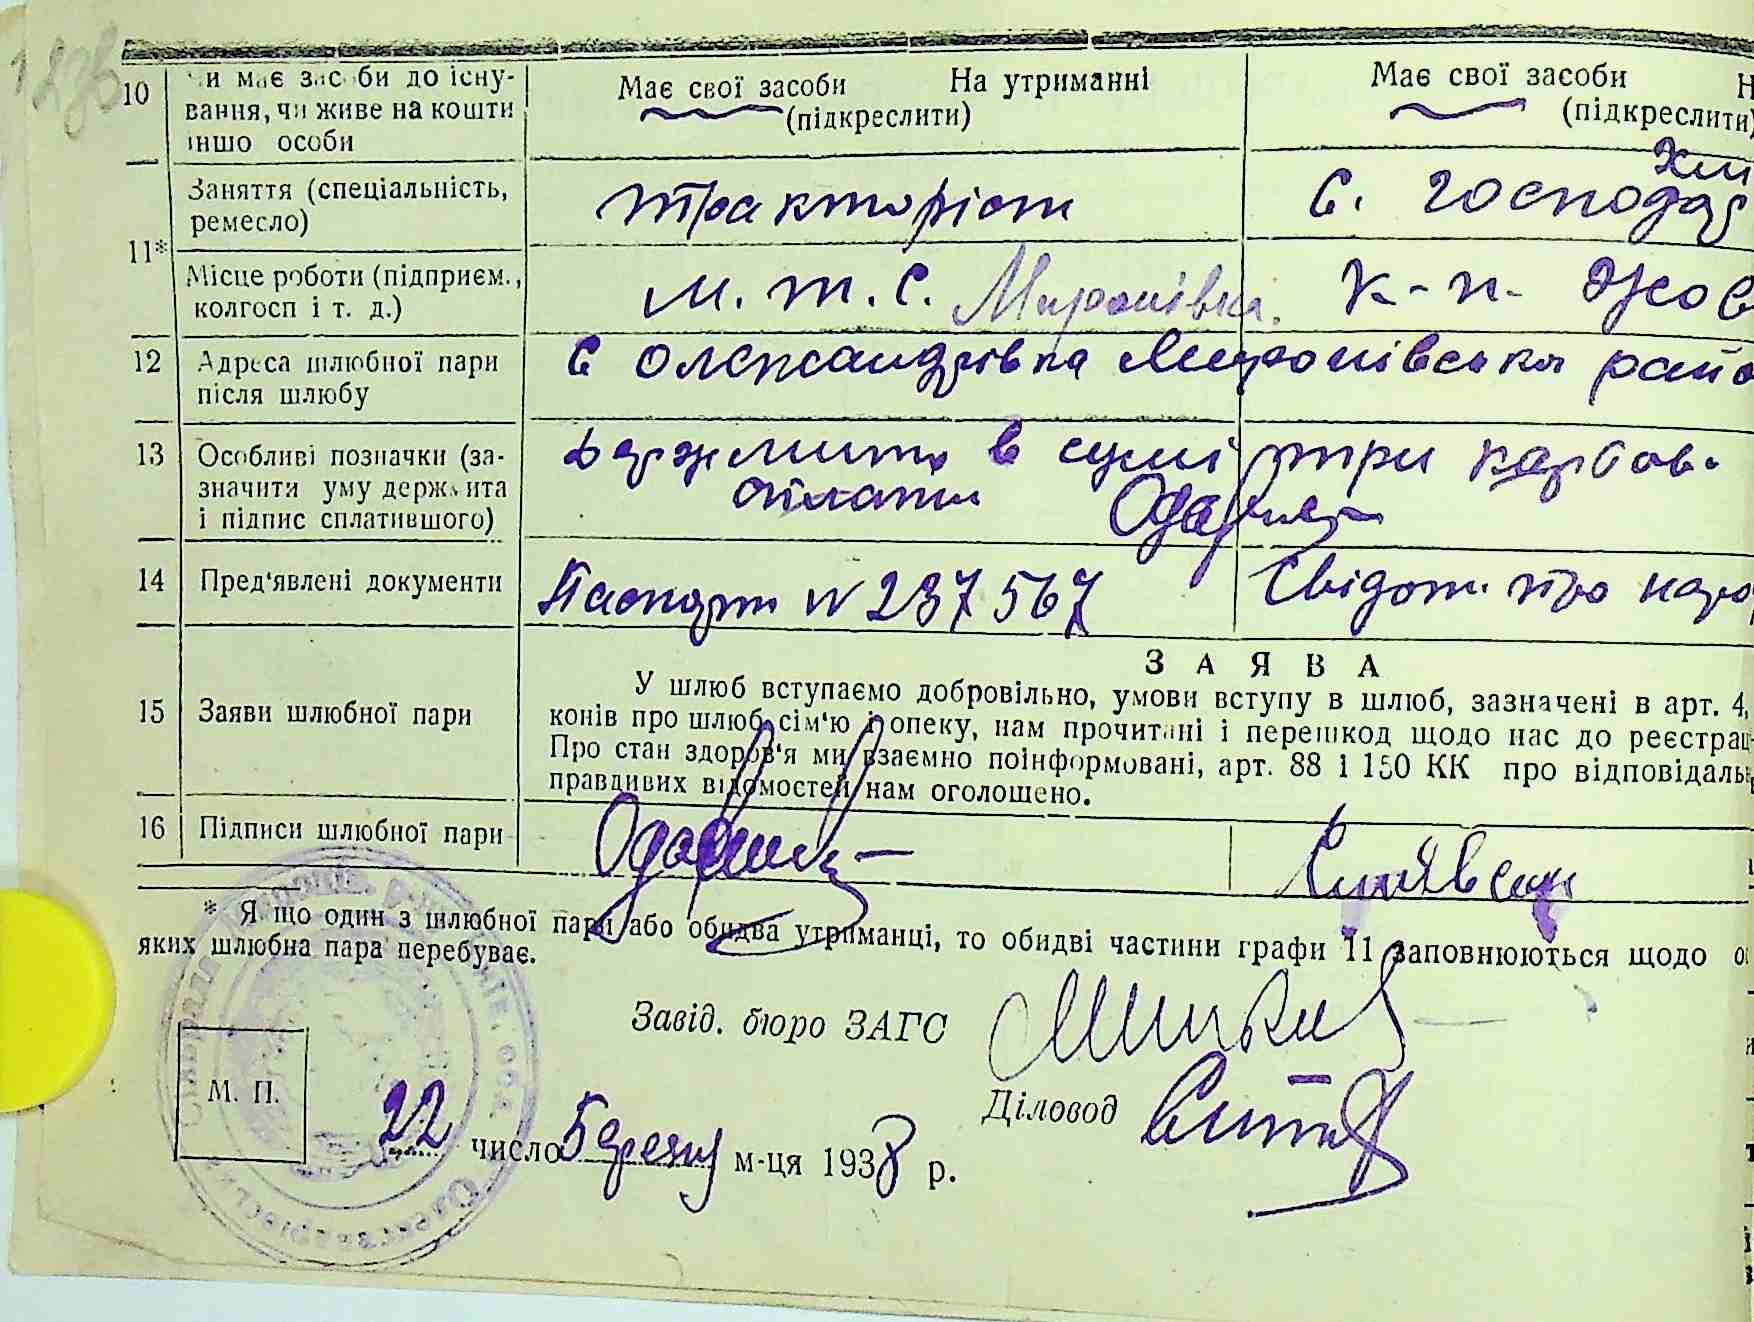 10 чи має засоби до існу-
вання, чи живе на кошти
іншо особи
Має свої засоби На утриманні
(підкреслити)
Має свої засоби Н
(підкреслити)
11*
Заняття (спеціальність,
ремесло)
тракторіст
С. господар
Місце роботи (підприєм.,
колгосп і т. д.)
М. Т. С. Миронівка.
к-п- Жов
12 Адреса шлюбної пари
після шлюбу
с Олександрівка Миронівська райо
13 Особливі позначки (за-
значити уму держмита
і підпис сплатившого)
держмито в сумі три карбов.
оплатив
14 Пред'явлені документи
Паспорт N 237567
Свідот. про наро
ЗАЯВА
15 Заяви шлюбної пари
У шлюб вступаємо добровільно, умови вступу в шлюб, зазначені в арт. 4,
конів про шлюб, сім'ю і опеку, нам прочитані і перешкод щодо нас до реєстрац
Про стан здоров'я ми взаємно поінформовані, арт. 88 і 150 КК про відповідаль
правдивих відомостей нам оголошено.
16 Підписи шлюбної пари
* Якщо один з шлюбної пари або обидва утриманці, то обидві частини графи 11 заповнюються щодо о
яких шлюбна пара перебуває.
Завід. бюро ЗАГС
М. П.
Діловод
22 число Березня м-ця 1938 р.